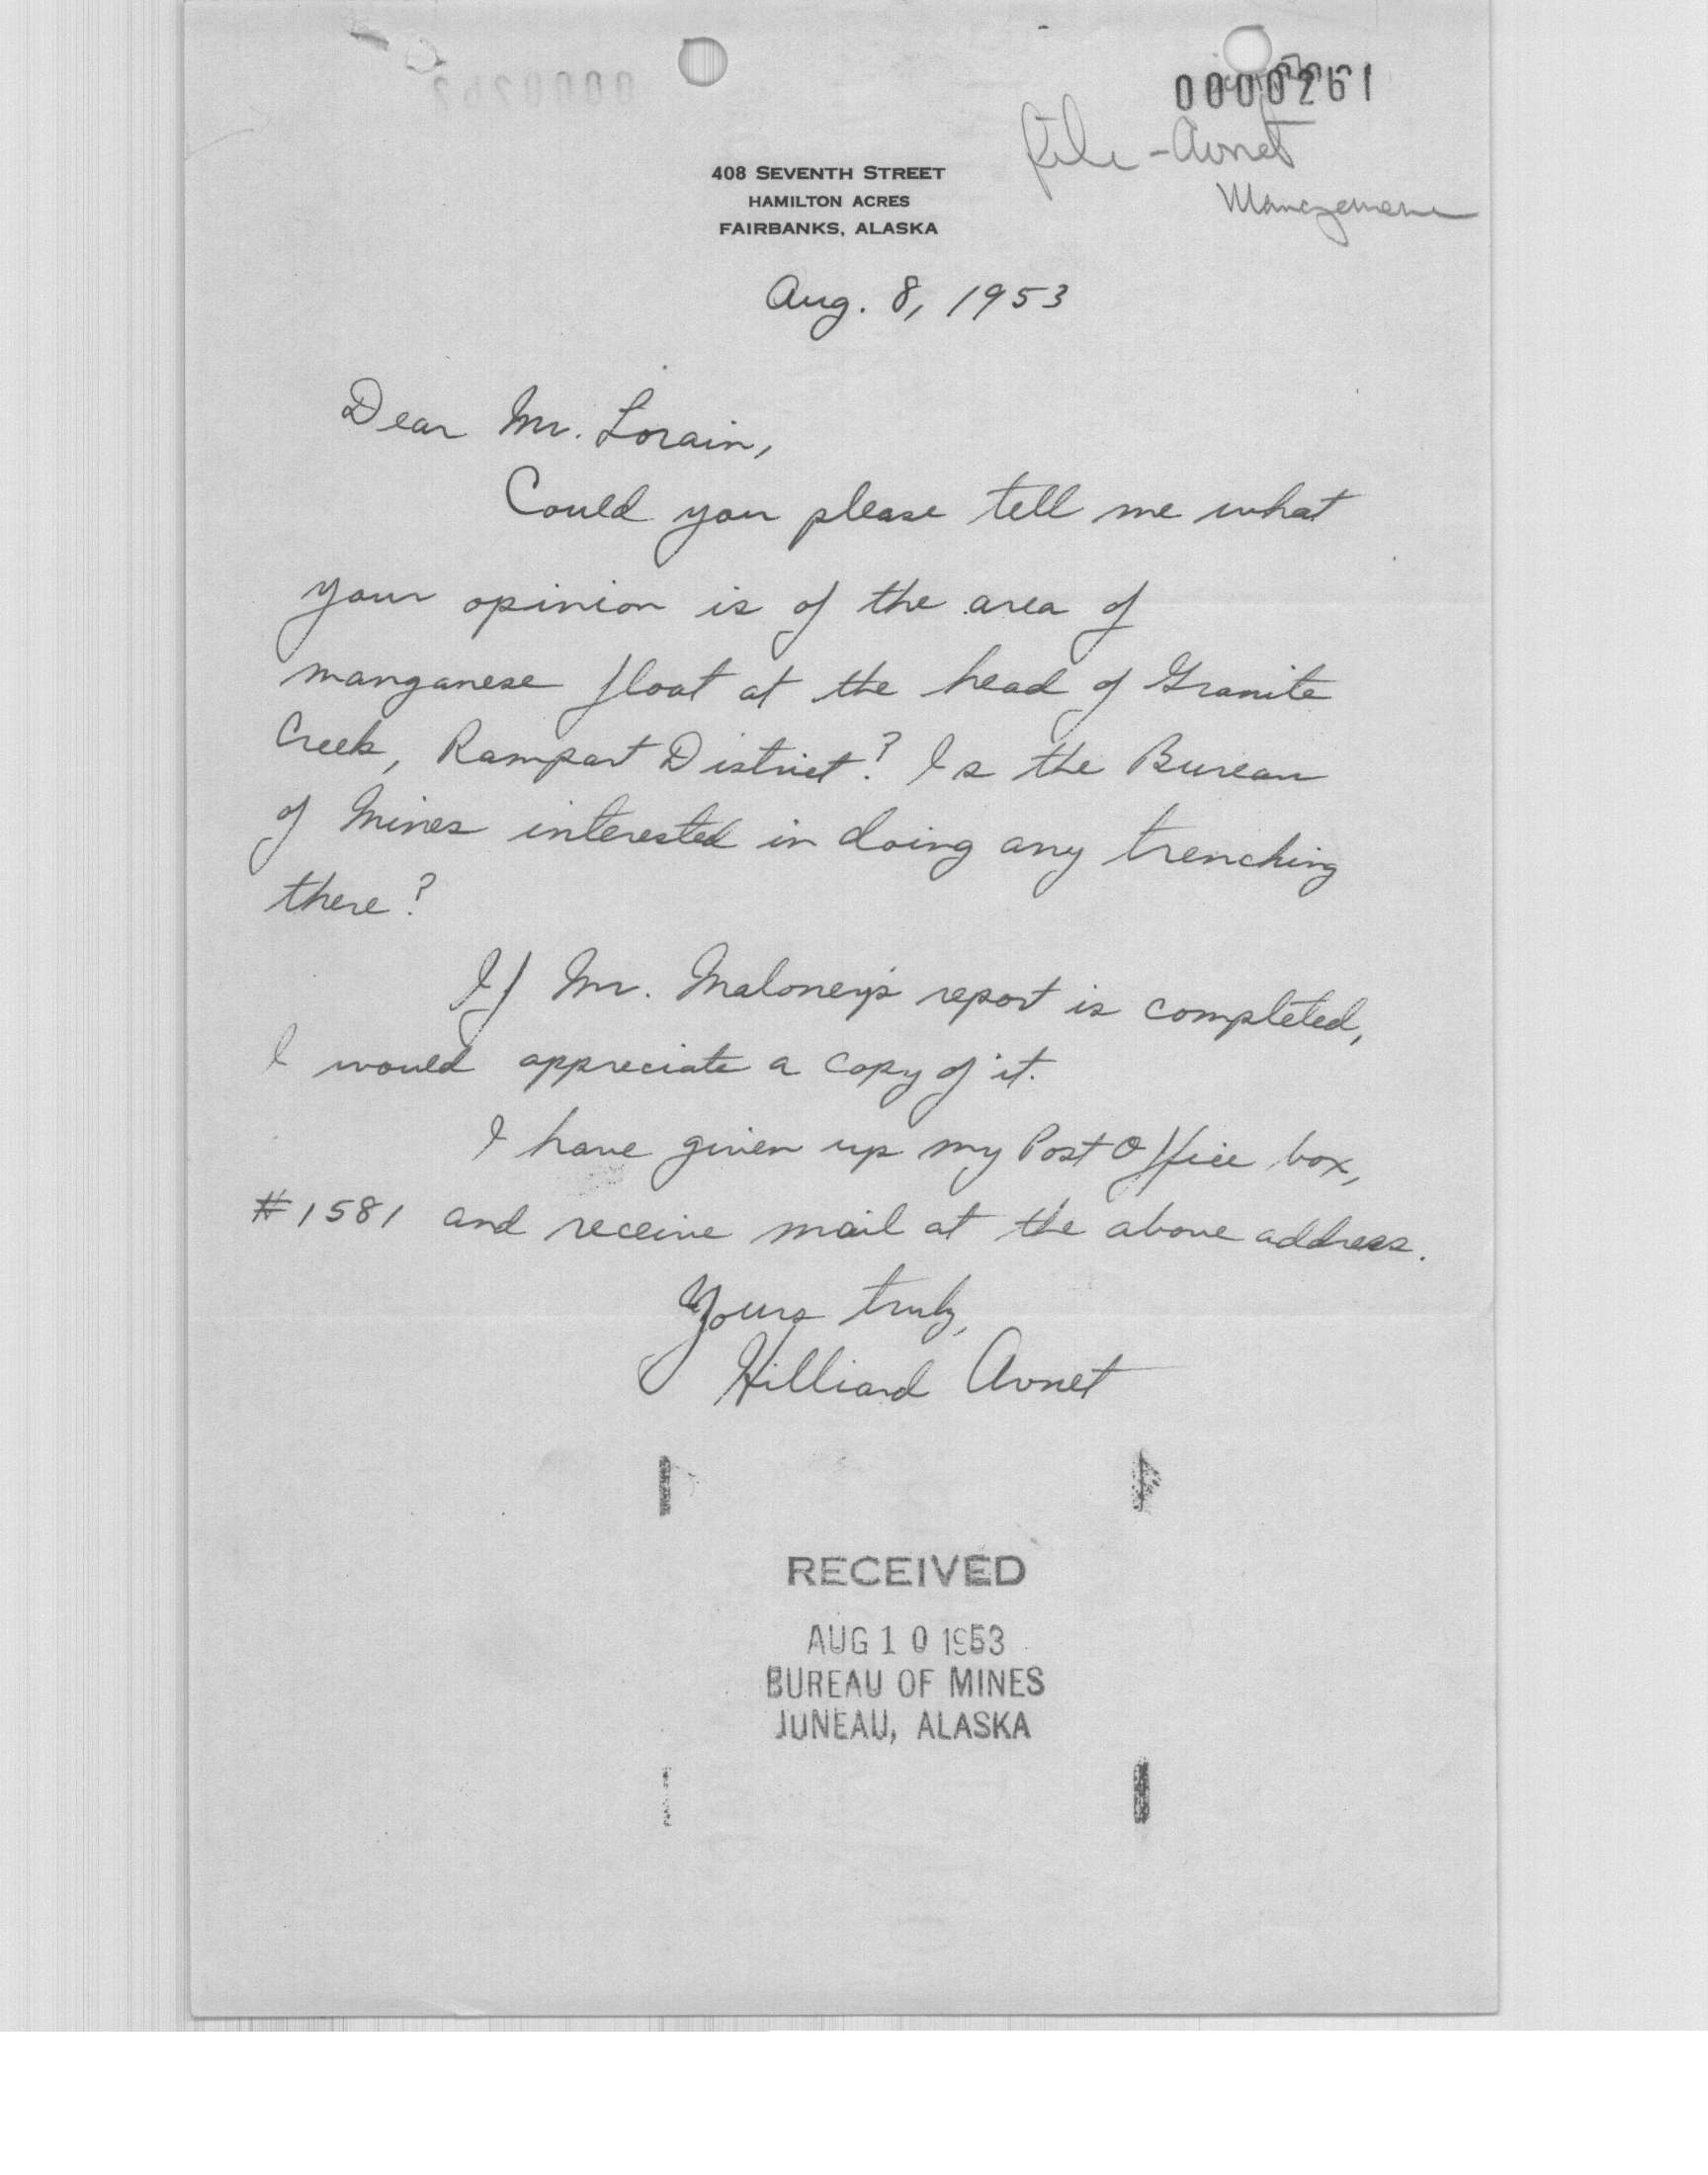 0000261
File - Avnet
408 SEVENTH STREET
HAMILTON ACRES
FAIRBANKS, ALASKA
Aug. 8, 1953
Dear Mr. Lorain,
Could you please tell me what
your opinion is of the area of
manganese float at the head of Granite
Creek, Rampart District? Is the Bureau
of Mines interested in doing any trenching
there?
If Mr. Maloney's report is completed,
I would appreciate a copy of it.
I have given up my Post Office box,
#1581 and receive mail at the above address.
Yours truly,
Hilliard Avnet
RECEIVED
AUG 10 1953
BUREAU OF MINES
JUNEAU, ALASKA